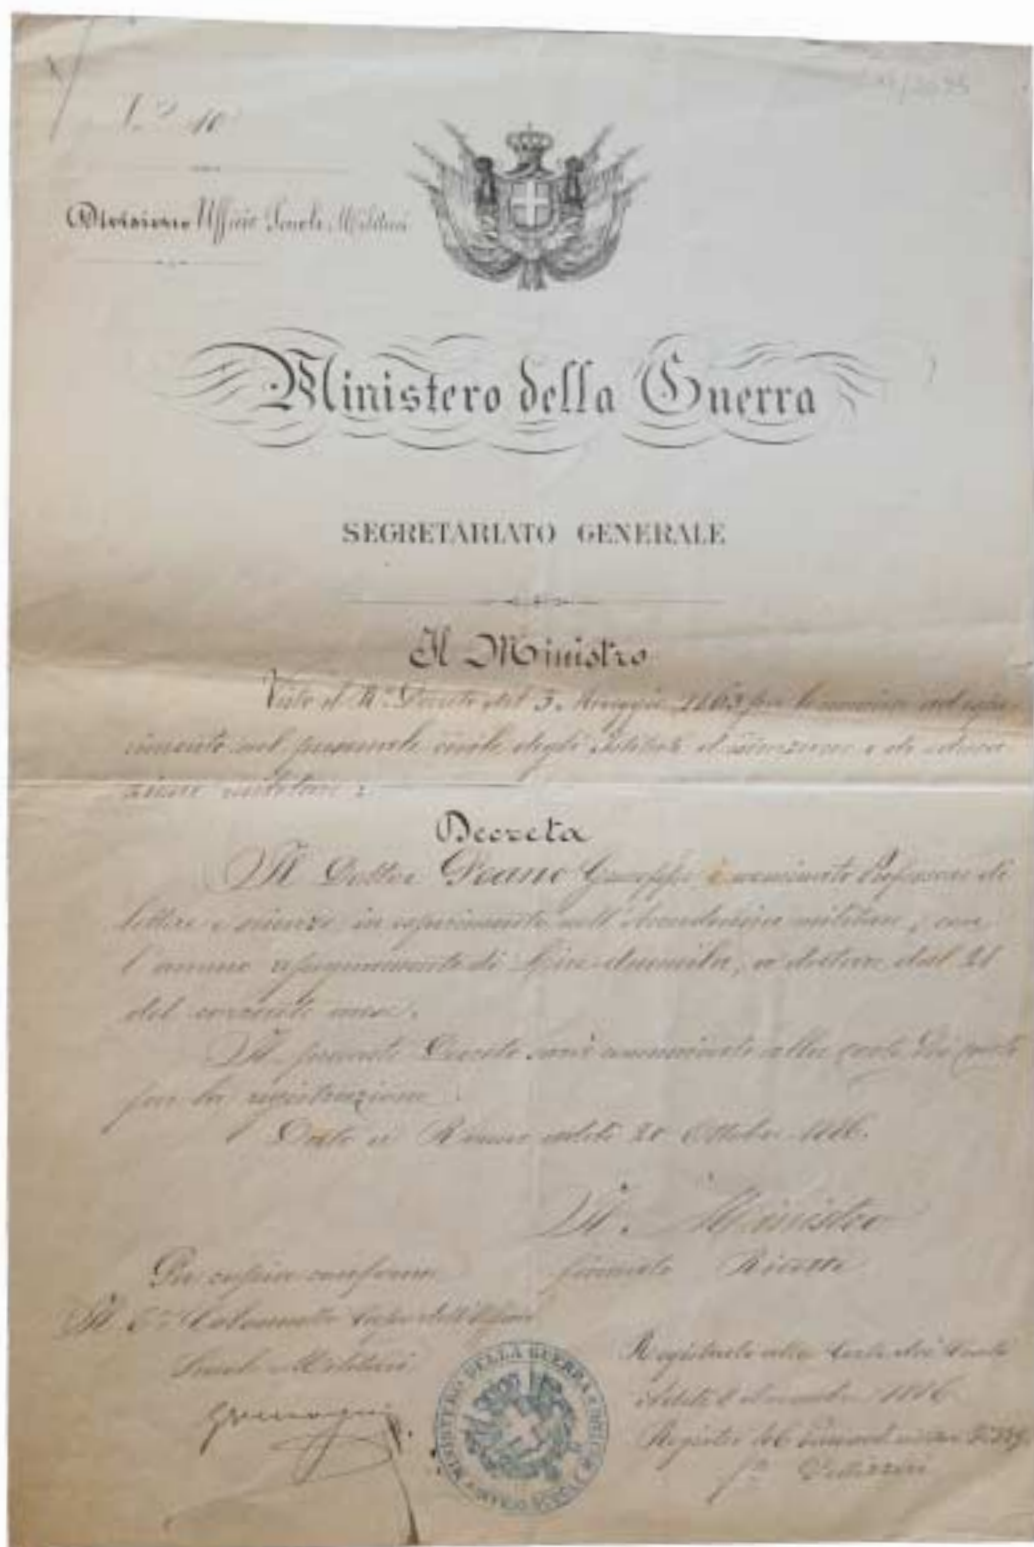 N.° 10
Divisione Ufficio Scuole Militari
Ministero della Guerra
SEGRETARIATO GENERALE
Il Ministro
Visto il R.° Decreto del 3. Maggio 1863 per le nomine ad esperimento nel personale civile degli Istituti d'istruzione e di educazione militare;
Decreta
Il Dottor Peano Giuseppe è nominato Professore di
lettere e scienze in esperimento nell'Accademia militare, con
l'annuo assegnamento di Lire duemila, a datare dal 21
del corrente mese.
Il presente Decreto sarà comunicato alla Corte dei Conti
per la registrazione.
Dato a Roma addì 20 Ottobre 1886.
Il Ministro
firmato Ricotti
Per copia conforme
Il Colonnello Capo dell'Ufficio
Scuole Militari
MINISTERO DELLA GUERRA
Registrato alla Corte dei Conti
addì 8 1886
Registro